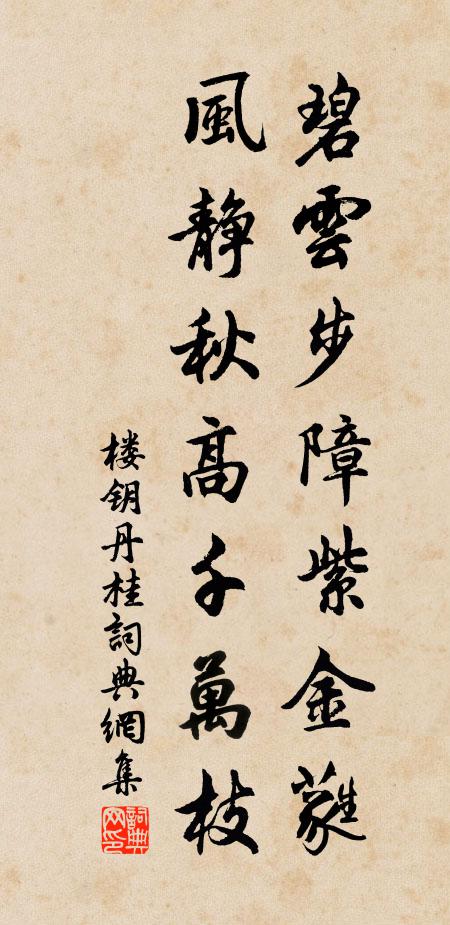 碧雲步障紫金蕤
風静秋高千萬枝
楼钥丹桂詞典網集
詞典网印